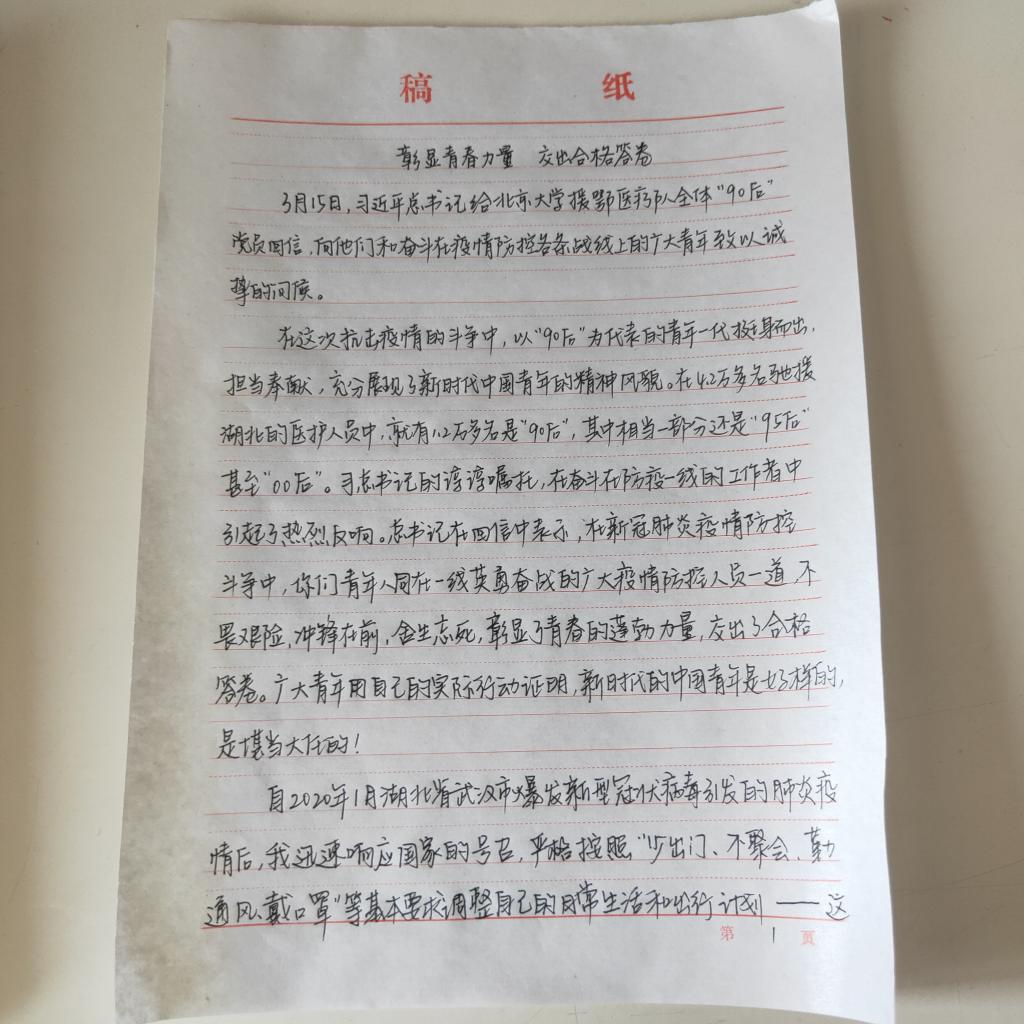 稿 纸
彰显青春力量 交出合格答卷
3月15日,习近平总书记给北京大学援鄂医疗队全体“90后”
党员回信,向他们和奋斗在疫情防控各条战线上的广大青年致以诚
挚的问候。
在这次抗击疫情的斗争中,以“90后”为代表的青年一代挺身而出,
担当奉献,充分展现了新时代中国青年的精神风貌。在4.2万多名驰援
湖北的医护人员中,就有1.2万多名是“90后”,其中相当一部分还是“95后”
甚至“00后”。习总书记的谆谆嘱托,在奋斗在防疫一线的工作者中
引起了热烈反响。总书记在回信中表示,在新冠肺炎疫情防控
斗争中,你们青年人同在一线英勇奋战的广大疫情防控人员一道,不
畏艰险,冲锋在前,舍生忘死,彰显了青春的蓬勃力量,交出了合格
答卷。广大青年用自己的实际行动证明,新时代的中国青年是好样的,
是堪当大任的!
自2020年1月湖北省武汉市爆发新型冠状病毒引发的肺炎疫
情后,我迅速响应国家的号召,严格按照“少出门、不聚会、勤
通风、戴口罩”等基本要求调整自己的日常生活和出行计划——这
第 1 页